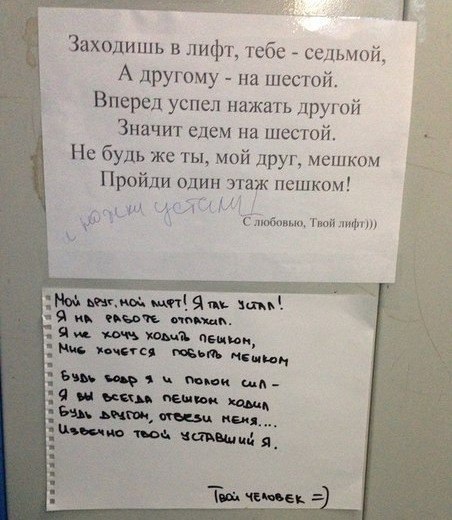 Заходишь в лифт, тебе - седьмой,
А другому - на шестой.
Вперед успел нажать другой
Значит едем на шестой.
Не будь же ты, мой друг, мешком
Пройди один этаж пешком!
ножки устали!
С любовью, Твой лифт)))
Мой друг, мой лифт! Я так устал!
Я на работе отпахал.
Я не хочу ходить пешком,
Мне хочется побыть мешком
Будь бодр я и полон сил -
Я бы всегда пешком ходил
Будь другом, отвези меня....
Извечно твой уставший я.
Твой человек =)